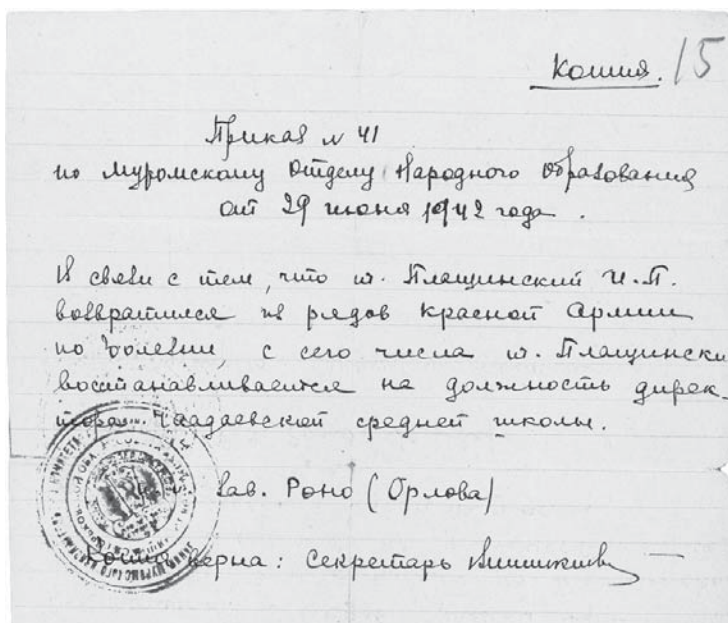 Копия. 15
Приказ № 41
по Муромскому отделу Народного образования
от 29 июня 1942 года.
В связи с тем, что т. Плащинский И.П.
возвратился из рядов Красной Армии
по болезни, с сего числа т. Плащински
востанавливается на должность дирек-
тора Чаадаевской средней школы.
Зав. Роно (Орлова)
Копия верна: Секретарь